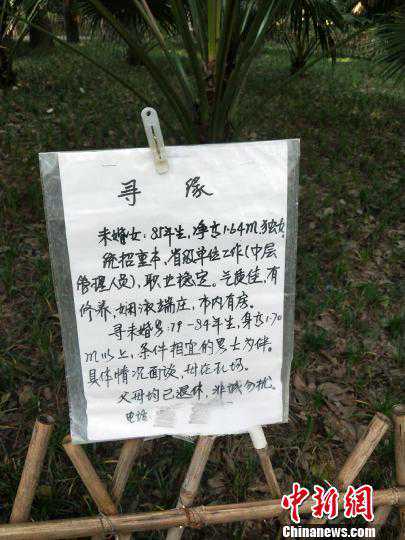 寻 缘
未婚女：85年生，净高1.64m，独女，
统招重本，省级单位工作（中层
管理人员），职业稳定。气质佳，有
修养，娴淑端庄，市内有房。
寻未婚男：79-84年生，身高1.70
m以上，条件相宜的男士为伴。
具体情况面谈，母在现场。
父母均已退休，非诚勿扰。
电话
中新网
Chinanews.com